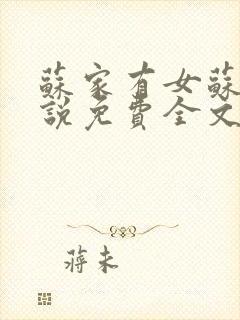 蘇家有女蘇
說免費全文
蔣未